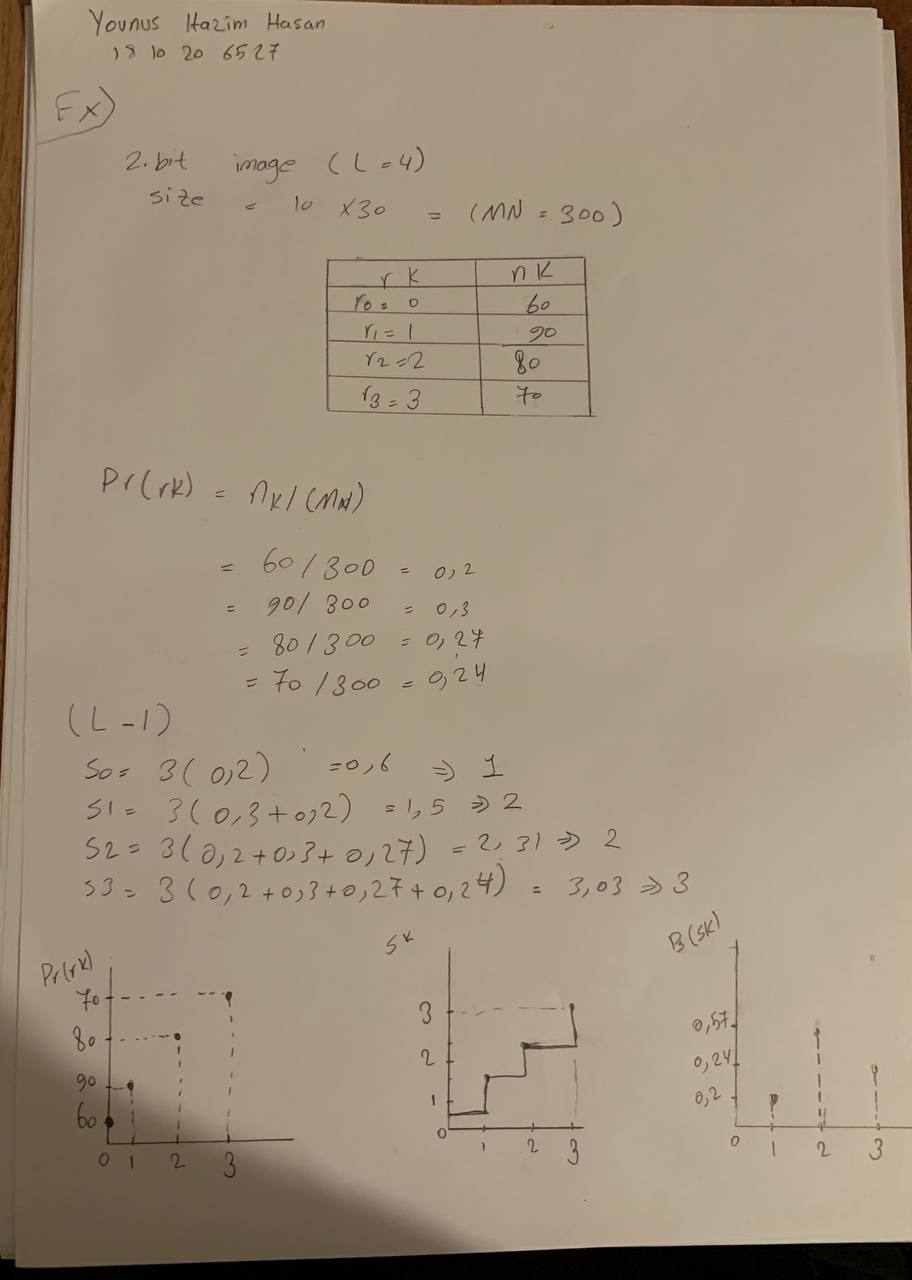 Younus Hazim Hasan
18 10 20 6527
Ex)
2.bit image (L=4)
size = 10 x30 = (MN = 300)
rK nK
r0= 0 60
r1= 1 90
r2=2 80
r3=3 70
Pr(rK) = nK/(MN)
= 60/300 = 0,2
= 90/300 = 0,3
= 80/300 = 0,27
= 70/300 = 0,24
(L-1)
S0= 3(0,2) =0,6 => 1
S1= 3(0,3+0,2) =1,5 => 2
S2= 3(0,2+0,3+0,27) = 2,31 => 2
S3= 3(0,2+0,3+0,27+0,24) = 3,03 => 3
Pr(rK)
70
80
90
60
0 1 2 3
SK
3
2
1
0 1 2 3
(SK)
0,57
0,24
0,2
0 1 2 3